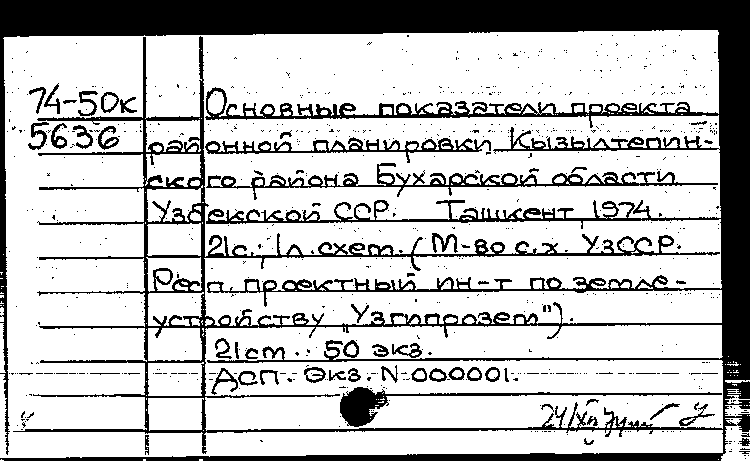 74-50к Основные показатели проекта
5636 районной планировки Кызылтепин-
ского района Бухарской области
Узбекской ССР. Ташкент, 1974.
21с.; 1л.схем. (М-во с.х. УзССР.
Респ. проектный ин-т по земле-
устройству „Узгипрозем").
21 см. 50 экз.
ДСП. Экз. N 000001.
24/XII